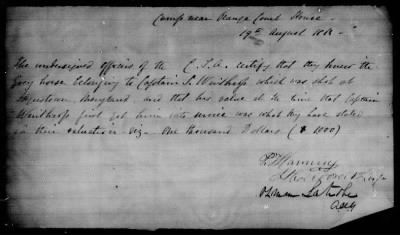 Camp near Orange Court House
19th August 186
The undersigned officers of the C.S.A. certify that they knew the
Gray horse belonging to Captain S. Winthrop which was shot at
Maryland and that his value at the time that Captain
Winthrop first got him into service was what they have stated
in their valuation viz. One thousand Dollars ($ 1000)
Manning
Osman Latrobe